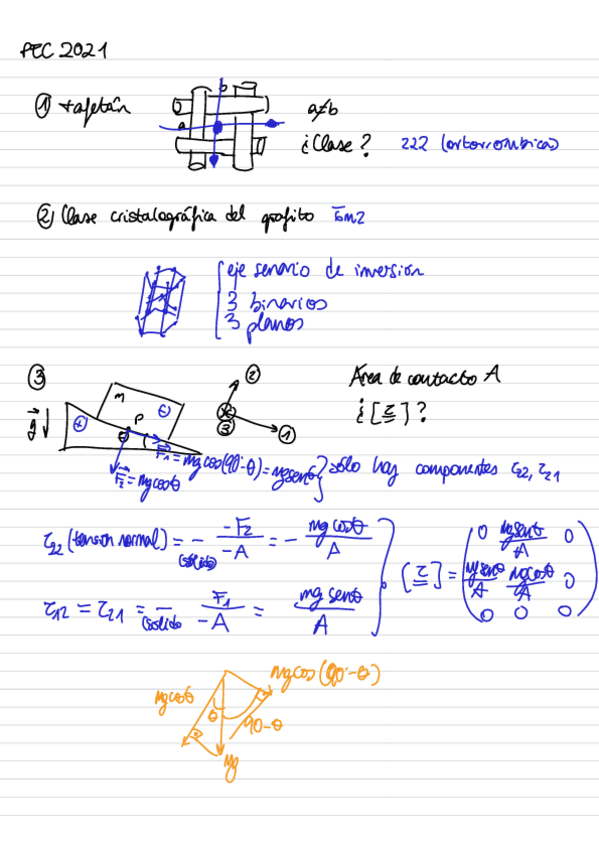 PEC 2021
① tafetán
b
a
a≠b
¿Clase? 222 (ortorrómbica)
② Clase cristalográfica del grafito 6̅m2
eje senario de inversión
3 binarios
3 planos
③
m
P
g⃗
②
③
①
Área de contacto A
¿[τ]?
F⃗₁ = mg cos(90-θ) = mg senθ
F⃗₂ = mg cosθ
sólo hay componentes τ22, τ21
τ22 (tensión normal) = - -F2/-A = - mg cosθ/A
(sólido)
τ12 = τ21 = - F1/-A = mg senθ/A
(sólido)
[τ] = ( 0 mg senθ/A 0
mg senθ/A mg cosθ/A 0
0 0 0 )
mg cos(90-θ)
mg cosθ
θ
90-θ
mg